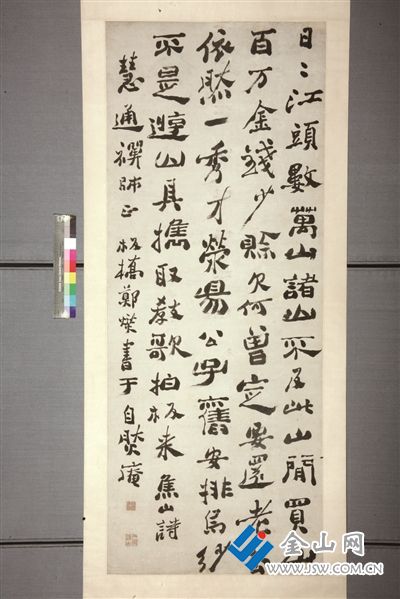 日〻江頭數萬山諸山不及此山閒買山
百万金錢少賒欠何曾定要還老去
依然一秀才滎陽公子舊安排烏紗
不是遊山具携取教歌拍板来焦山詩
慧通禪師正板橋鄭燮書于自然庵
金山网
WWW.JSW.COM.CN